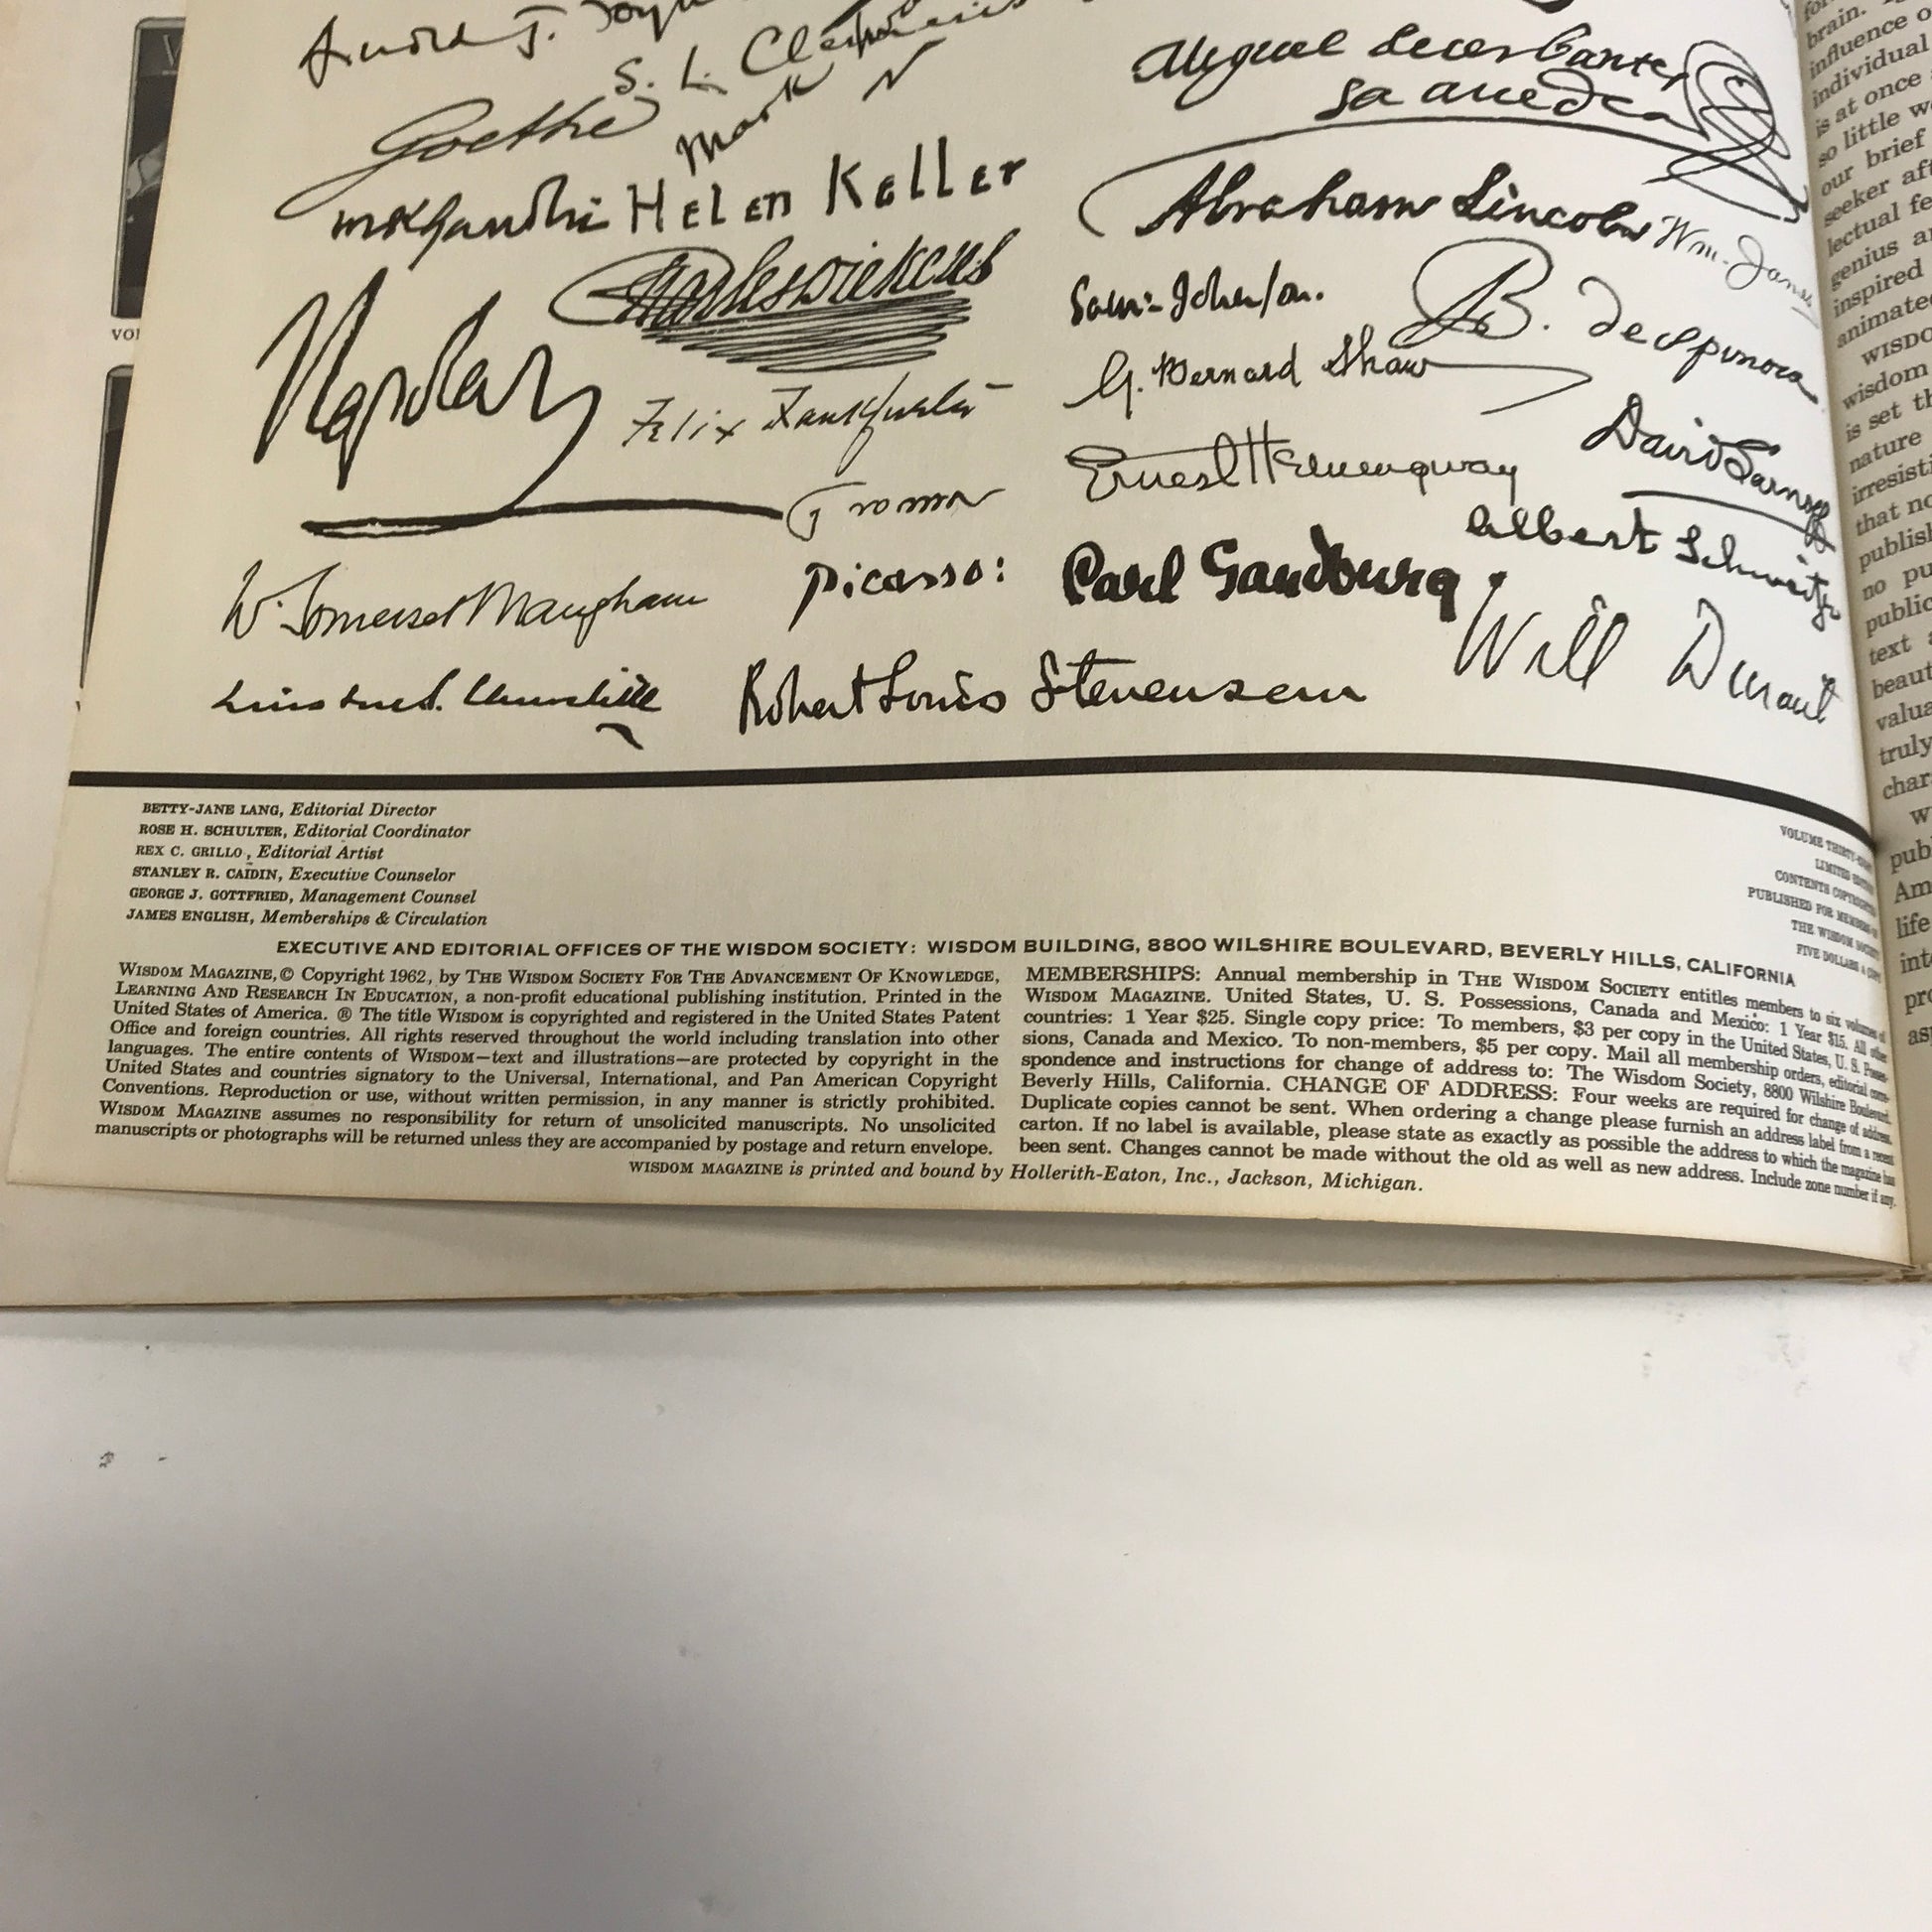 S. L. Clemens
Mark
Goethe
Miguel de Cerbantes
Saavedra
mkGandhi Helen Keller
Abraham Lincoln Wm. James
Charles Dickens
Sam: Johnson.
B. despinoza
Napoleon
G. Bernard Shaw
Felix Frankfurter
David Sarnoff
Ernest Hemingway
Albert Schweitzer
W. Somerset Maugham
Picasso:
Carl Sandburg
Will Durant
Winston S. Churchill
Robert Louis Stevenson
BETTY-JANE LANG, Editorial Director
ROSE H. SCHULTER, Editorial Coordinator
REX C. GRILLO, Editorial Artist
STANLEY R. CAIDIN, Executive Counselor
GEORGE J. GOTTFRIED, Management Counsel
JAMES ENGLISH, Memberships & Circulation
VOLUME THIRTY-
LIMITED
CONTENTS COPYRIGHTED
PUBLISHED FOR MEMBERS OF
THE WISDOM SOCIETY
FIVE DOLLARS A COPY
EXECUTIVE AND EDITORIAL OFFICES OF THE WISDOM SOCIETY: WISDOM BUILDING, 8800 WILSHIRE BOULEVARD, BEVERLY HILLS, CALIFORNIA
WISDOM MAGAZINE, © Copyright 1962, by THE WISDOM SOCIETY FOR THE ADVANCEMENT OF KNOWLEDGE,
LEARNING AND RESEARCH IN EDUCATION, a non-profit educational publishing institution. Printed in the
United States of America. ® The title WISDOM is copyrighted and registered in the United States Patent
Office and foreign countries. All rights reserved throughout the world including translation into other
languages. The entire contents of WISDOM—text and illustrations—are protected by copyright in the
United States and countries signatory to the Universal, International, and Pan American Copyright
Conventions. Reproduction or use, without written permission, in any manner is strictly prohibited.
WISDOM MAGAZINE assumes no responsibility for return of unsolicited manuscripts. No unsolicited
manuscripts or photographs will be returned unless they are accompanied by postage and return envelope.
MEMBERSHIPS: Annual membership in THE WISDOM SOCIETY entitles members to six volumes of
WISDOM MAGAZINE. United States, U. S. Possessions, Canada and Mexico: 1 Year $15. All other
countries: 1 Year $25. Single copy price: To members, $3 per copy in the United States, U. S. Posses-
sions, Canada and Mexico. To non-members, $5 per copy. Mail all membership orders, editorial corre-
spondence and instructions for change of address to: The Wisdom Society, 8800 Wilshire Boulevard,
Beverly Hills, California. CHANGE OF ADDRESS: Four weeks are required for change of address.
Duplicate copies cannot be sent. When ordering a change please furnish an address label from a recent
carton. If no label is available, please state as exactly as possible the address to which the magazine has
been sent. Changes cannot be made without the old as well as new address. Include zone number if any.
WISDOM MAGAZINE is printed and bound by Hollerith-Eaton, Inc., Jackson, Michigan.
brain.
influence
individual
is at once
so little
our brief
seeker
lectual
genius
inspired
animated
wisdom
is set
nature
that
no
text
truly
life